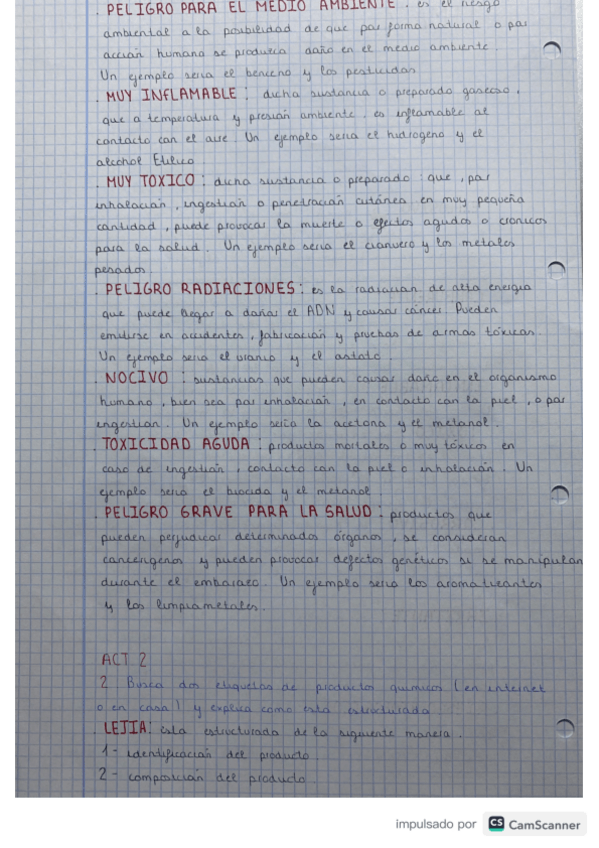 . PELIGRO PARA EL MEDIO AMBIENTE : es el riesgo
ambiental a la posibilidad de que por forma natural o por
acción humana se produzca daño en el medio ambiente.
Un ejemplo seria el benceno y los pesticidas
. MUY INFLAMABLE : dicha sustancia o preparado gaseoso,
que a temperatura y presión ambiente, es inflamable al
contacto con el aire. Un ejemplo seria el hidrogeno y el
alcohol Etilico
. MUY TOXICO : dicha sustancia o preparado : que , por
inhalación , ingestión o penetración cutánea en muy pequeña
cantidad , puede provocar la muerte o efectos agudos o cronicos
para la salud. Un ejemplo seria el cianuero y los metales
pesados.
. PELIGRO RADIACIONES : es la radiación de alta energia
que puede llegar a dañar el ADN y causar cáncer. Pueden
emitirse en accidentes , fabricación y pruebas de armas tóxicas.
Un ejemplo seria el uranio y el astato.
. NOCIVO : sustancias que pueden causar daño en el organismo
humano , bien sea por inhalación , en contacto con la piel , o por
ingestión. Un ejemplo sería la acetona y el metanol.
. TOXICIDAD AGUDA : productos mortales o muy tóxicos en
caso de ingestión , contacto con la piel o inhalación. Un
ejemplo seria el biocida y el metanol
. PELIGRO GRAVE PARA LA SALUD : productos que
pueden perjudicar determinados órganos , se consideran
cancerigenos y pueden provocar defectos genéticos si se manipulan
durante el embarazo. Un ejemplo seria los aromatizantes
y los limpiametales.
ACT 2
2 Busca dos etiquetas de productos quimicos (en internet
o en casa) y explica como esta estructurada
. LEJIA: esta estructurado de la siguiente manera.
1 - identificación del producto.
2 - composición del producto
impulsado por CS CamScanner